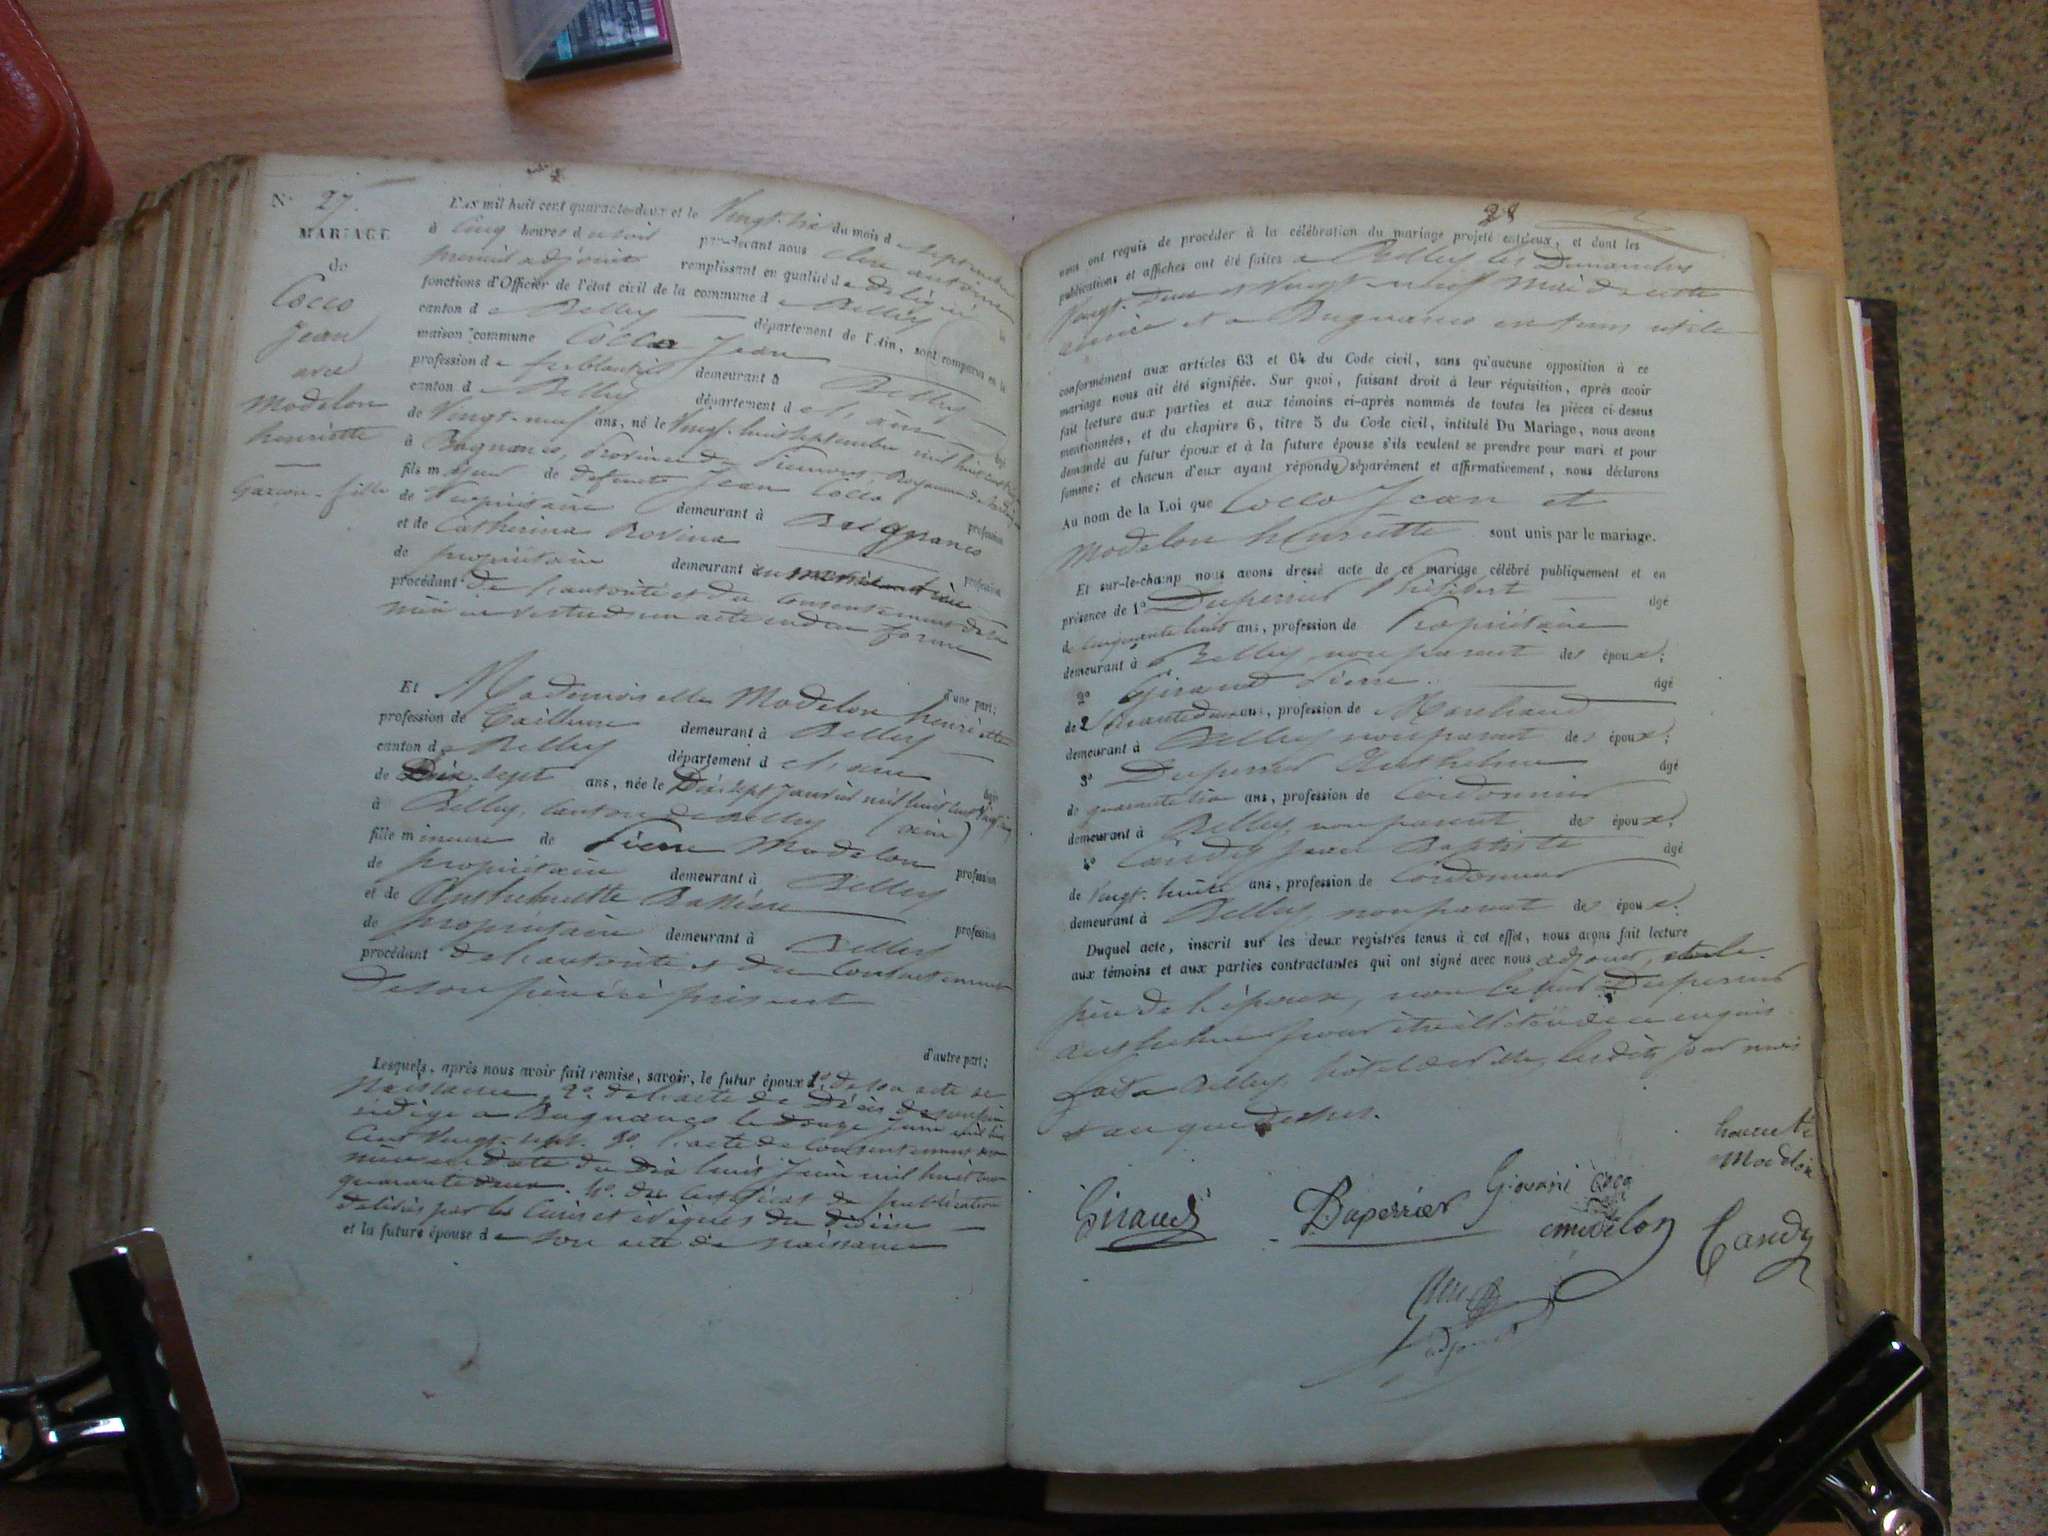 N° 27.
MARIAGE
de
Cocco
Jean
avec
Modelon
henriette
Garcon - fille
L'an mil huit cent quarante-deux et le Vingt-six du mois de Septembre
à Cinq heures du soir par-devant nous Clerc antoine
premier adjoint remplissant en qualité de délégué les
fonctions d'Officier de l'état civil de la commune de Belley
canton de Belley département de l'Ain, sont comparus en la
maison commune Cocco Jean
profession de ferblantier demeurant à Belley
canton de Belley département de l'ain âgé
de Vingt-neuf ans, né le Vingt-huit Septembre mil huit cent
à Bognanco, Province de Royaume de
fils majeur de defunct Jean Cocco profession
de Propriétaire demeurant à Bognanco
et de Catherina Rovina profession
de propriétaire demeurant au même lieu
procédant de l'autorité et du Consentement de sa
mère en vertu d'un acte en due forme
d'une part;
Et Mademoiselle Modelon henriette
profession de Tailleuse demeurant à Belley
canton de Belley département de l'ain âgée
de Dix-sept ans, née le Dix-sept Janvier mil huit cent Vingt cinq
à Belley, Canton de Belley (ain)
fille mineure de Pierre Modelon profession
de propriétaire demeurant à Belley
et de Anthelmette profession
de propriétaire demeurant à Belley
procédant de l'autorité et du Consentement
de son père ici présent
d'autre part;
Lesquels, après nous avoir fait remise, savoir, le futur époux 1° de son acte de
Naissance, 2° de l'acte de Décès de son père
rédigé a Bognanco le douze Juin mil huit
Cent Vingt-sept. 3° l'acte de Consentement
mère en date du Dix huit Juin mil huit cent
quarante deux. 4° du Certificat de publication
délivrés par les Curés et évêques du diocèse
et la future épouse de son acte de Naissance
28
nous ont requis de procéder à la célébration du mariage projeté entr'eux, et dont les
publications et affiches ont été faites a Belley les Dimanches
Vingt-Deux et Vingt-neuf Mai de cette
année et a Bognanco en tems utile
conformément aux articles 63 et 64 du Code civil, sans qu'aucune opposition à ce
mariage nous ait été signifiée. Sur quoi, faisant droit à leur réquisition, après avoir
fait lecture aux parties et aux témoins ci-après nommés de toutes les pièces ci-dessus
mentionnées, et du chapitre 6, titre 5 du Code civil, intitulé Du Mariage, nous avons
demandé au futur époux et à la future épouse s'ils veulent se prendre pour mari et pour
femme; et chacun d'eux ayant répondu séparément et affirmativement, nous déclarons
Au nom de la Loi que Cocco Jean et
Modelon henriette sont unis par le mariage.
Et sur-le-champ nous avons dressé acte de ce mariage célébré publiquement et en
présence de 1° Duperrier Philibert âgé
de Cinquante huit ans, profession de Propriétaire
demeurant à Belley, non parent des époux;
2° Giraud Pierre. âgé
de ans, profession de Marchand
demeurant à Belley non parent des époux;
3° Duperrier Anthelme âgé
de quarante six ans, profession de Cordonnier
demeurant à Belley, non parent des époux;
4° Candy Jean Baptiste âgé
de Vingt-huit ans, profession de Cordonnier
demeurant à Belley, non parent des époux.
Duquel acte, inscrit sur les deux registres tenus à cet effet, nous avons fait lecture
aux témoins et aux parties contractantes qui ont signé avec nous adjoint, et le
père de l'épouse, non Duperrier
anthelme pour être illitéré de ce enquis.
fait a Belley, hôtel de ville, les dits jour mois
et an que dessus.
henriette
Modelon
Giraud Duperrier Giovani Coco
modelon Candy
Clerc
adjoint